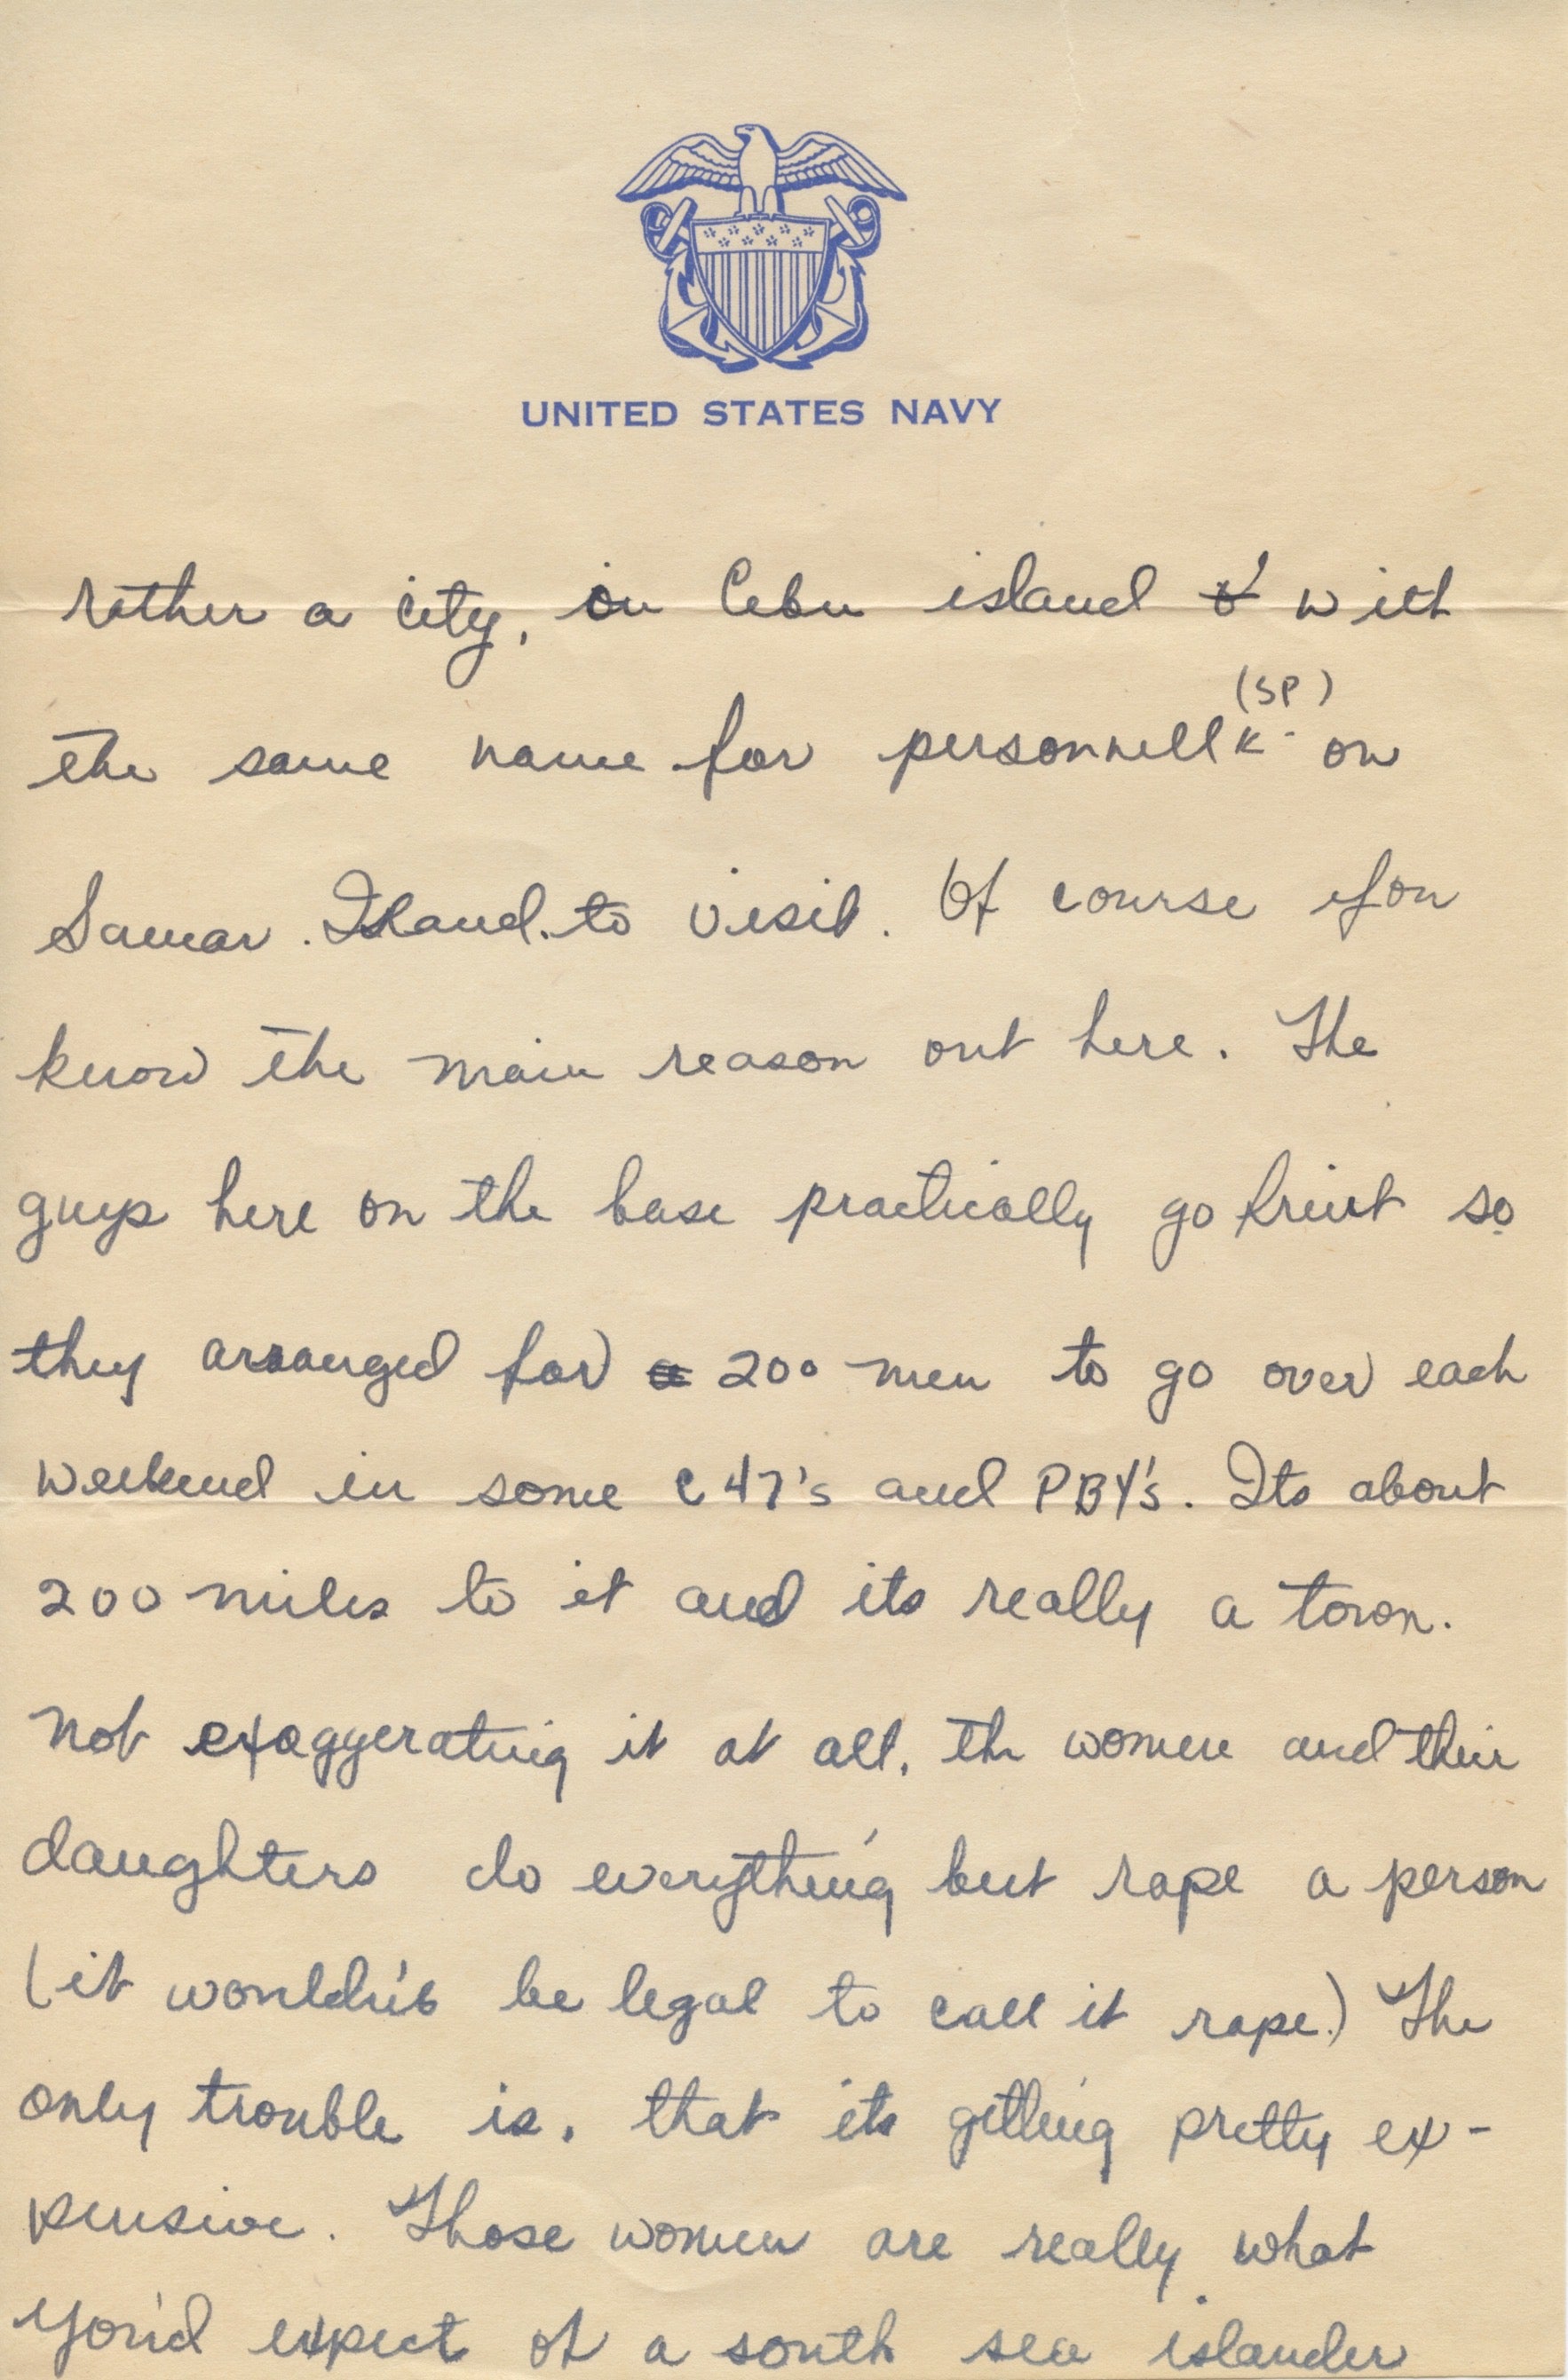 UNITED STATES NAVY
rather a city, on Cebu island with
(SP)
the same name for personnell on
Samar Island to visit. Of course you
know the main reason out here. The
guys here on the base practically go so
they arranged for 200 men to go over each
weekend in some C47's and PBY's. Its about
200 miles to it and its really a town.
Not exaggerating it at all, the women and their
daughters do everything but rape a person
(it wouldn't be legal to call it rape.) The
only trouble is, that its getting pretty ex-
pensive. Those women are really what
you'd expect of a south sea islander